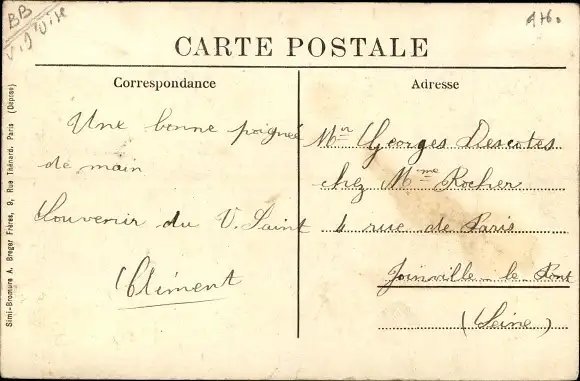 BB
976.
CARTE POSTALE
Correspondance
Adresse
Une bonne poignée
de main
Souvenir du V. Saint
Clément
Mr Georges Descotes
chez Mme Rocher
4 rue de Paris
Joinville-le-Pont
(Seine)
Simi-Bromure A. Breger Frères, 9, Rue Thénard, Paris (Déposé)